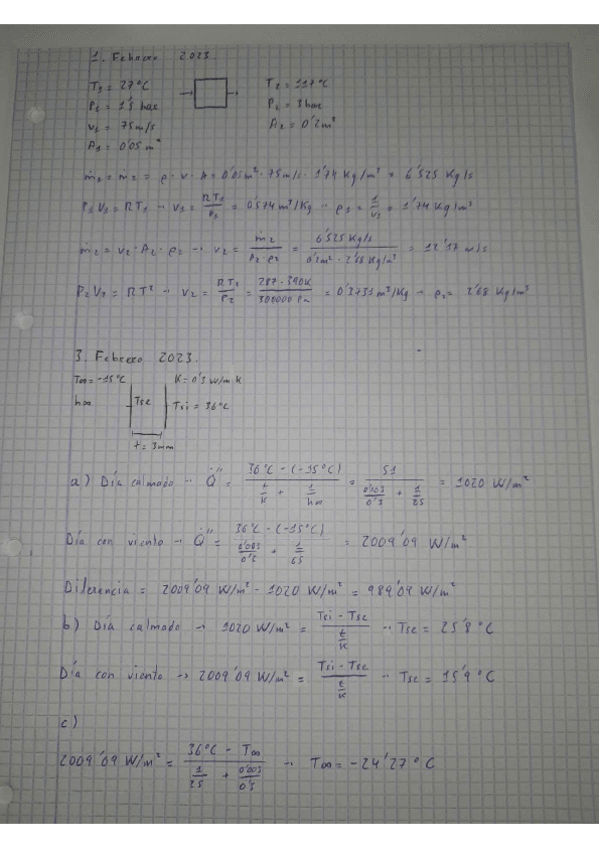 1. Febrero 2023.
T₁ = 27°C T₂ = 117°C
P₁ = 1'5 bar P₂ = 3 bar
v₁ = 75 m/s A₂ = 0'2 m²
A₁ = 0'05 m²
ṁ₁ = ṁ₂ = ρ · v · A = 0'05 m² · 75 m/s · 1'74 Kg/m³ = 6'525 Kg/s
P₁ V₁ = R T₁ → v₁ = RT₁/P₁ = 0'574 m³/Kg → ρ₁ = 1/v₁ = 1'74 Kg/m³
ṁ₂ = v₂ · A₂ · ρ₂ → v₂ = ṁ₂/(A₂ · ρ₂) = (6'525 Kg/s)/(0'2 m² · 2'68 Kg/m³) = 12'17 m/s
P₂ V₂ = R T₂ → v₂ = RT₂/P₂ = (287 · 390K)/(300000 Pa) = 0'3731 m³/Kg → ρ₂ = 2'68 Kg/m³
3. Febrero 2023.
T∞ = -15°C K = 0'3 W/m K
h∞ Tse Tsi = 36°C
t = 3mm
a) Día calmado → Q̇'' = (36°C - (-15°C))/(t/K + 1/h∞) = 51/(0'003/0'3 + 1/25) = 1020 W/m²
Día con viento → Q̇'' = (36°C - (-15°C))/(0'003/0'3 + 1/65) = 2009'09 W/m²
Diferencia = 2009'09 W/m² - 1020 W/m² = 989'09 W/m²
b) Día calmado → 1020 W/m² = (Tsi - Tse)/(t/K) → Tse = 25'8 °C
Día con viento → 2009'09 W/m² = (Tsi - Tse)/(t/K) → Tse = 15'9 °C
c)
2009'09 W/m² = (36°C - T∞)/(1/25 + 0'003/0'3) → T∞ = -24'27 °C